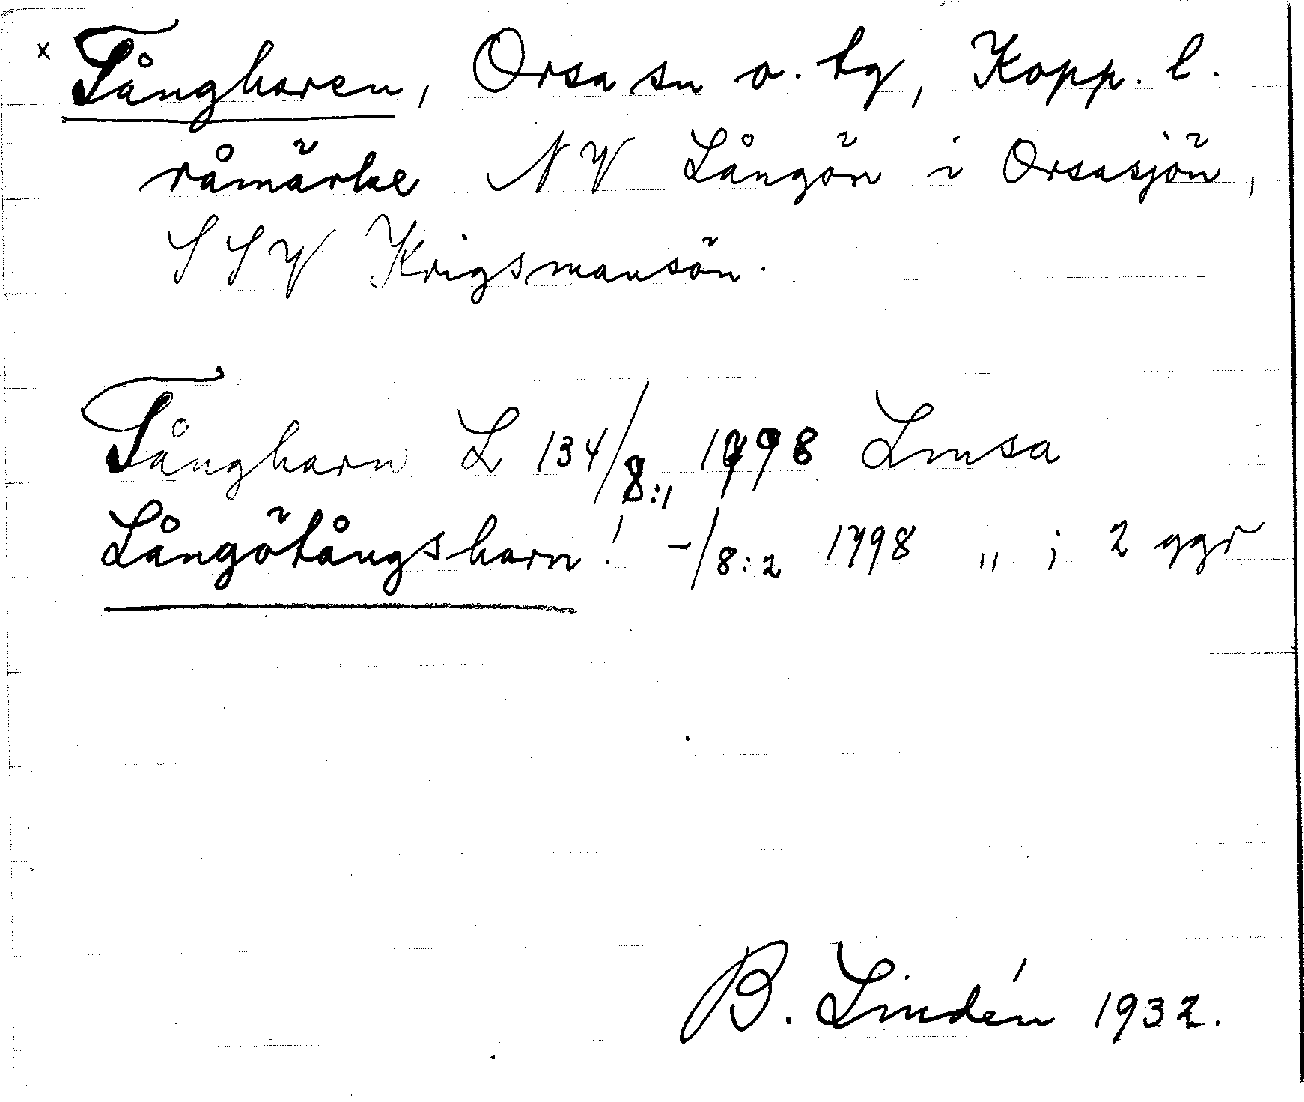 x Tångharen, Orsa sn o. tg, Kopp. l.
råmärke NV Långön i Orsasjön,
SSV Krigsmansön.
Tångharn L 134/8:1 1798 Lmsa
Långötångsharn! -/8:2 1798 " ; 2 ggr
B. Lindén 1932.